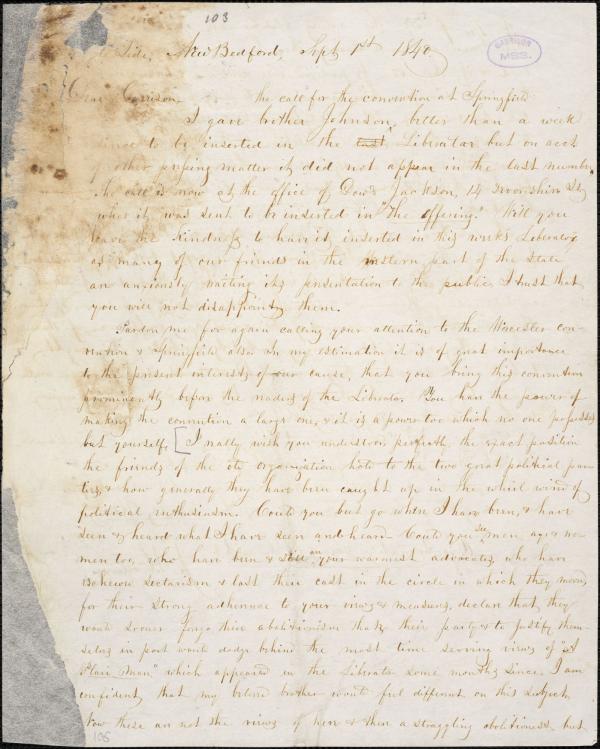 103
Side, New Bedford, Sept 1st 1840.
GARRISON MSS.
Dear Garrison,
the call for the convention at Springfield
I gave brother Johnson, better than a week
since to be inserted in the last Liberator but on acct
of other pressing matter it did not appear in the last number
The call is now at the office of Dow & Jackson, 14 Devonshire St
where it was sent to be inserted in "The offering." Will you
have the kindness to have it inserted in this weeks Liberator
as many of our friends in the western part of the State
are anxiously waiting its presentation to the public, I trust that
you will not disappoint them.
Pardon me for again calling your attention to the Worcester con-
vention & Springfield also. In my estimation it is of great importance
to the present interests of our cause, that you bring this convention
prominently before the readers of the Liberator. You have the power of
making the convention a large one, & it is a power too which no one possesses
but yourself. [I really wish you understood perfectly the exact position
the friends of the old organization hold to the two great political par-
ties, & how generally they have been caught up in the whirlwind of
political enthusiasm. Could you but go where I have been, & have
seen & heard what I have seen and heard. Could you see men, aye & wo-
men too, who have been & still are your warmest advocates, who have
eschewed sectarism & lost their cast in the circle in which they moved,
for their strong adherence to your views & measures, declare that they
would sooner forego their abolitionism than their party & to justify them-
selves in part would dodge behind the most time serving views of "A
Plain Man" which appeared in the Liberator some months since. I am
confident that my beloved brother would feel different on this subject.
Now these are not the views of here & there a straggling abolitionist, but
105